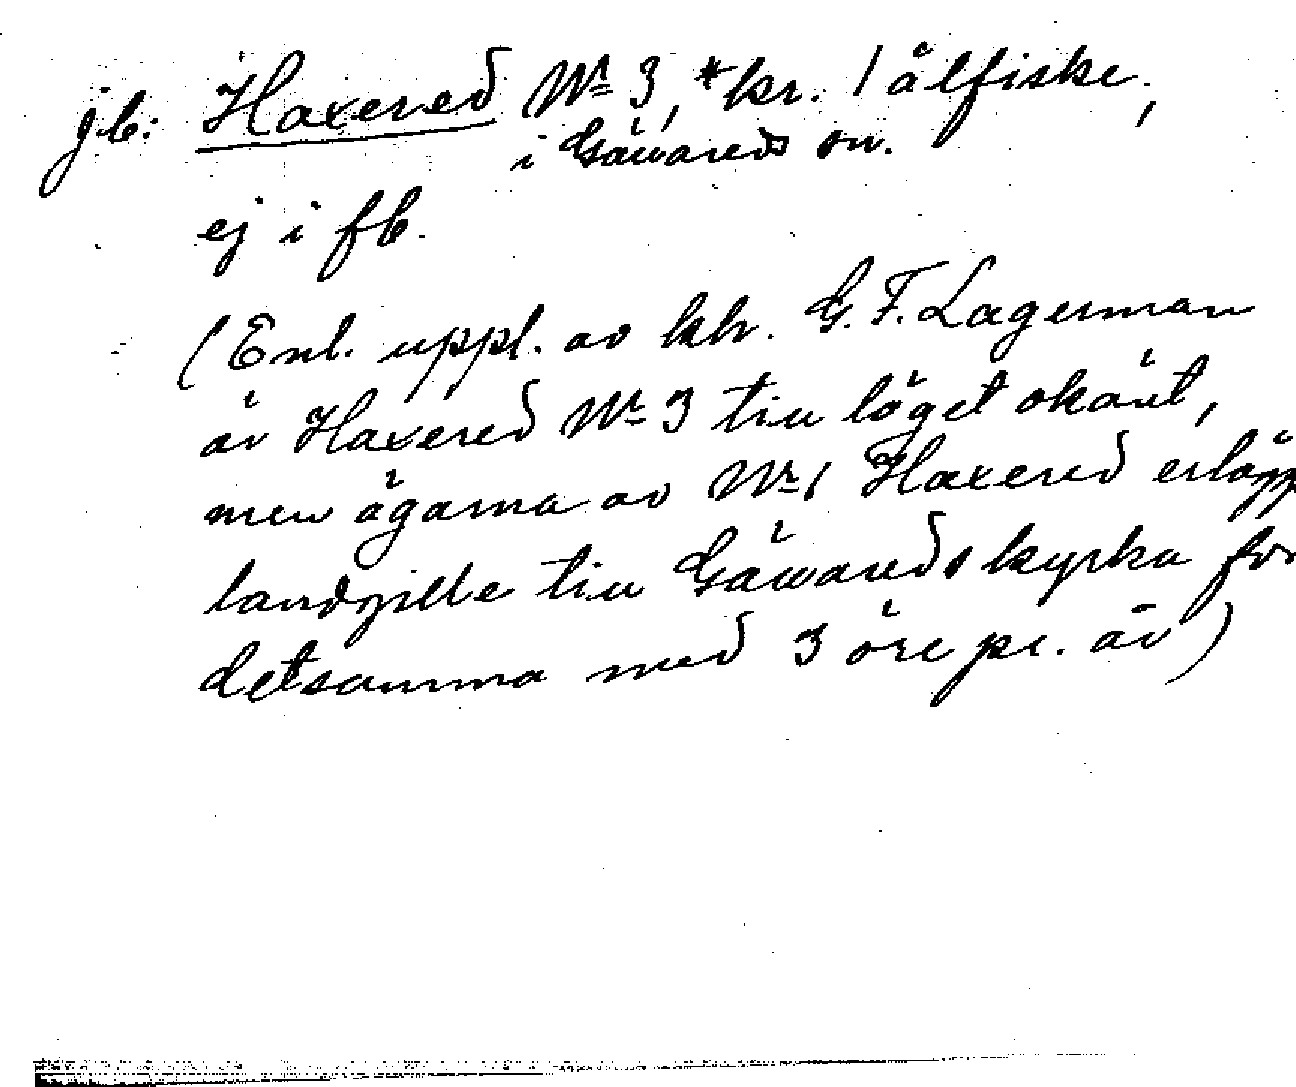 jb: Haxered No 3, *kr. 1 ålfiske,
i Gäwareds sn.
ej i fb.
(Enl. uppl. av kh. G. F. Lagerman
är Haxered No 3 till läget okänt,
men ägarna av No 1 Haxered erlägg
landgille till Gäwareds kyrka för
detsamma med 3 öre pr. år)